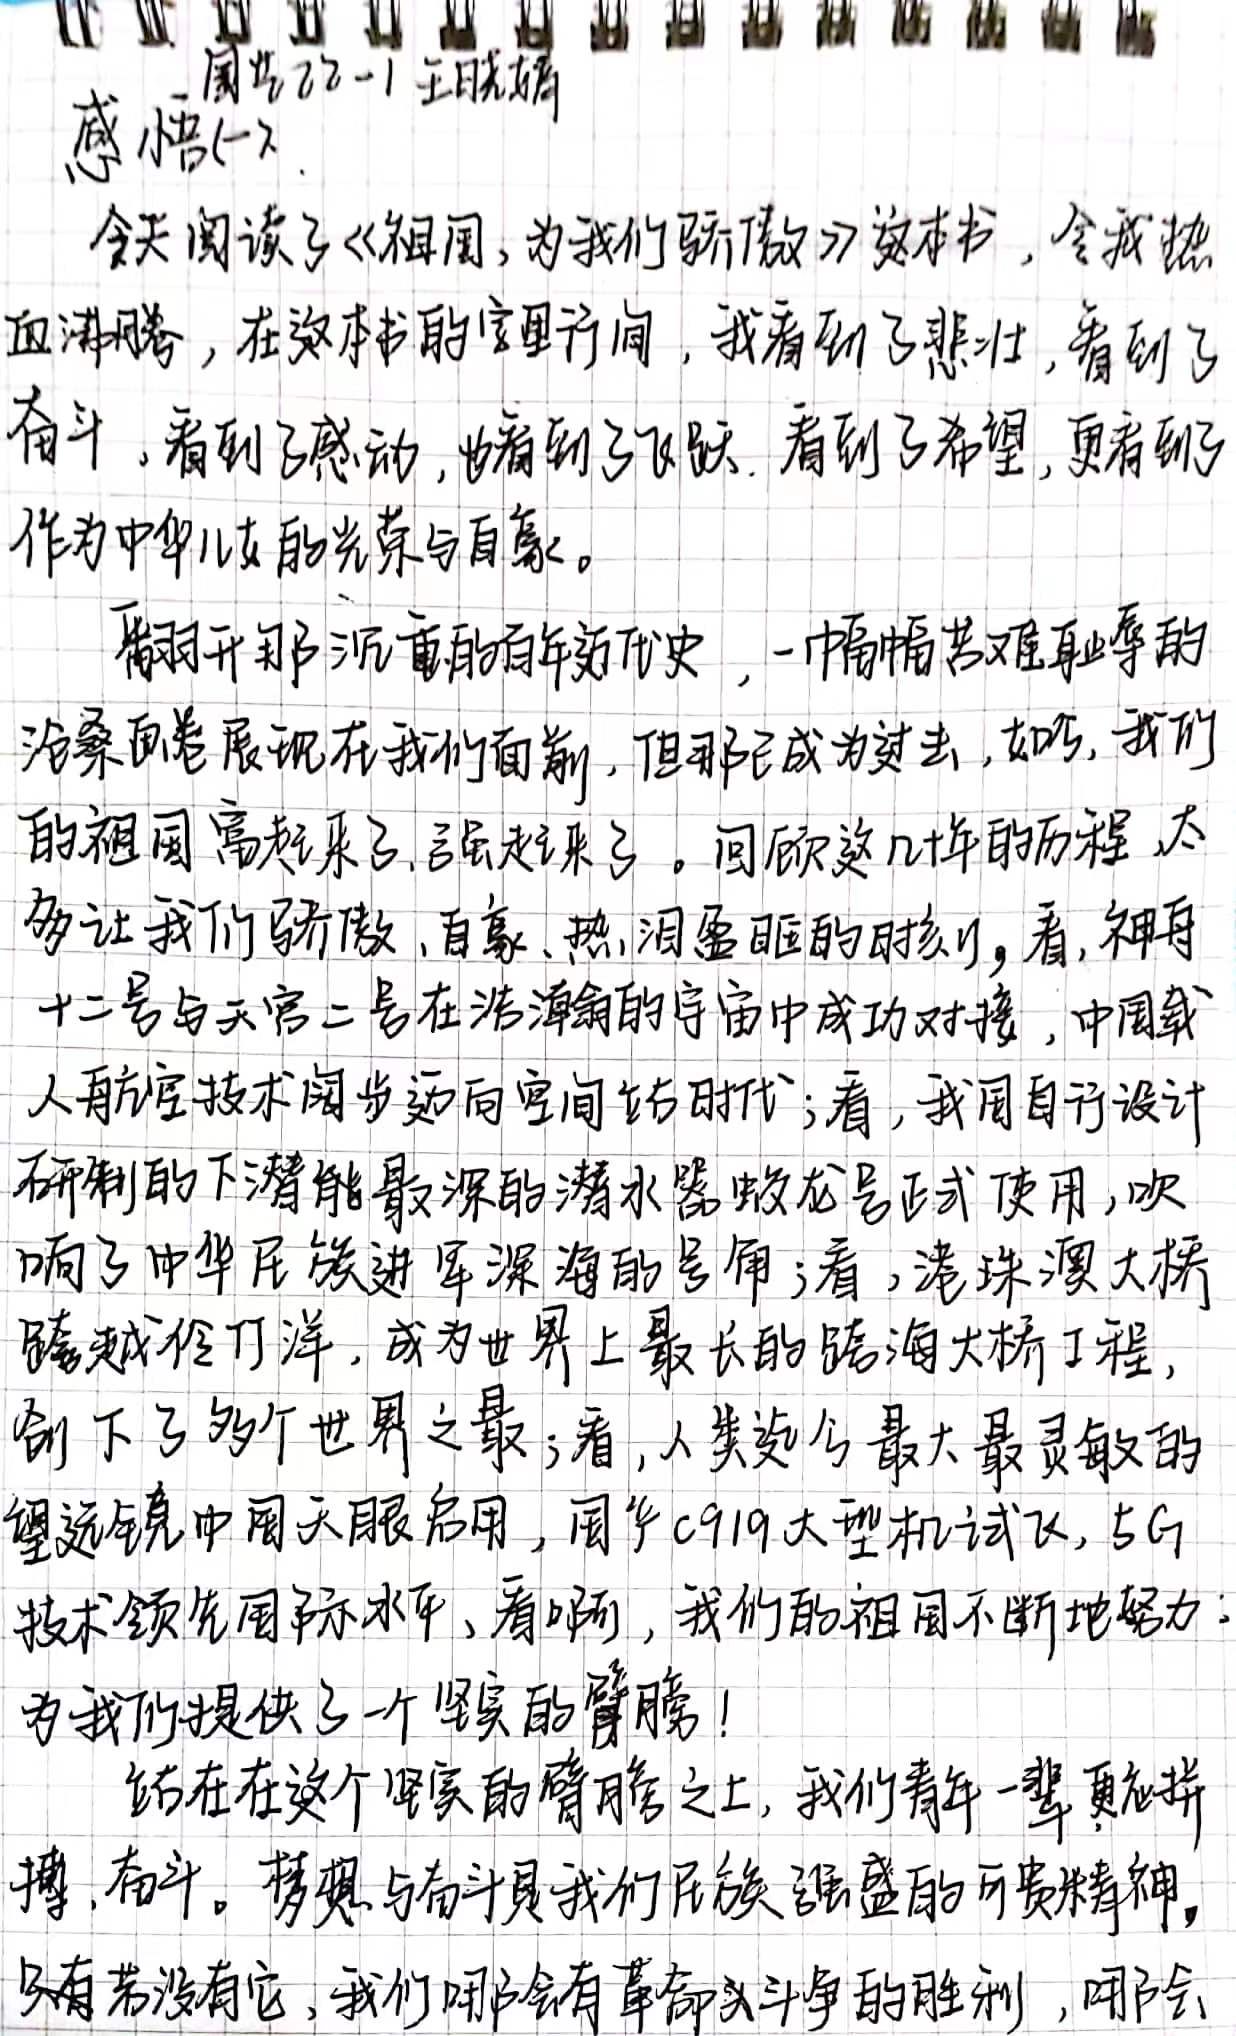 国贸22-1 王晓婧
感悟(一)
今天阅读了《祖国,为我们骄傲》这本书,令我热
血沸腾,在这本书的字里行间,我看到了悲壮,看到了
奋斗,看到了感动,也看到了飞跃.看到了希望,更看到了
作为中华儿女的光荣与自豪。
翻开那沉重的百年近代史,一幅幅苦难耻辱的
沧桑画卷展现在我们面前,但那已成为过去,如今,我们
的祖国富起来了、强起来了。回顾这几十年的历程,太
多让我们骄傲、自豪、热泪盈眶的时刻。看,神舟
十二号与天宫二号在浩瀚的宇宙中成功对接,中国载
人航空技术阔步迈向空间站时代;看,我国自行设计
研制的下潜能最深的潜水器蛟龙号正式使用,吹
响了中华民族进军深海的号角;看,港珠澳大桥
跨越伶仃洋,成为世界上最长的跨海大桥工程,
创下了多个世界之最;看,人类迄今最大最灵敏的
望远镜中国天眼启用,国产C919大型机试飞,5G
技术领先国际水平、看啊,我们的祖国不断地努力:
为我们提供了一个坚实的臂膀!
站在在这个坚实的臂膀之上,我们青年一辈更应拼
搏、奋斗。梦想与奋斗是我们民族强盛的可贵精神。
只有若没有它,我们哪会有革命斗争的胜利,哪会